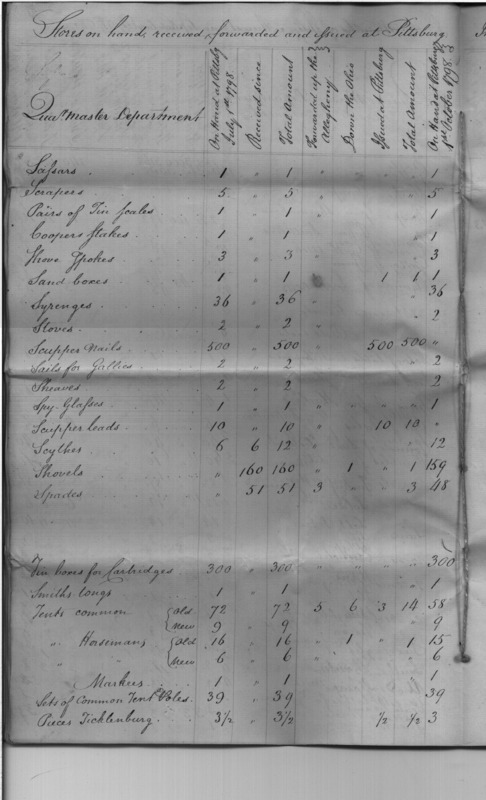 Stores on hand, received, forwarded and issued at Pittsburg
Quar Master Department
On Hand at Pittsbg July 1st 1798
Received since
Total Amount
Forwarded up the Allegheny
Down the Ohio
Issued at Pittsburg
Total Amount
On Hand at Pittsburg 1st October 1798
1 " 1 " 1
Scrapers 5 " 5 " 5
Pairs of Tin scales 1 " 1 " 1
Coopers stakes 1 " 1 " 1
3 " 3 " 3
Sand boxes 1 " 1 " 1 1 1
Syrenges 36 " 36 " 36
Stoves 2 " 2 " 2
Scupper Nails 500 " 500 500 500 "
Sails for Gallies 2 " 2 " 2
Sheaves 2 " 2 2
Spy Glasses 1 " 1 " " " " 1
Scupper leads 10 " 10 " 10 10 "
Scythes 6 6 12 " " " 12
Shovels " 160 160 " 1 " 1 159
Spades " 51 51 3 " 3 48
Tin boxes for Cartridges 300 " 300 " " " " 300
Smiths tongs 1 " 1 " 1
Tents common { old 72 " 72 5 6 3 14 58
new 9 " 9 " 9
" Horsemans { old 16 " 16 " 1 " 1 15
" { new 6 " 6 " 6
Markees 1 " 1 " 1
Sets of Common Tent Poles 39 " 39 39
Pieces Ticklenburg 3 1/2 " 3 1/2 1/2 1/2 3